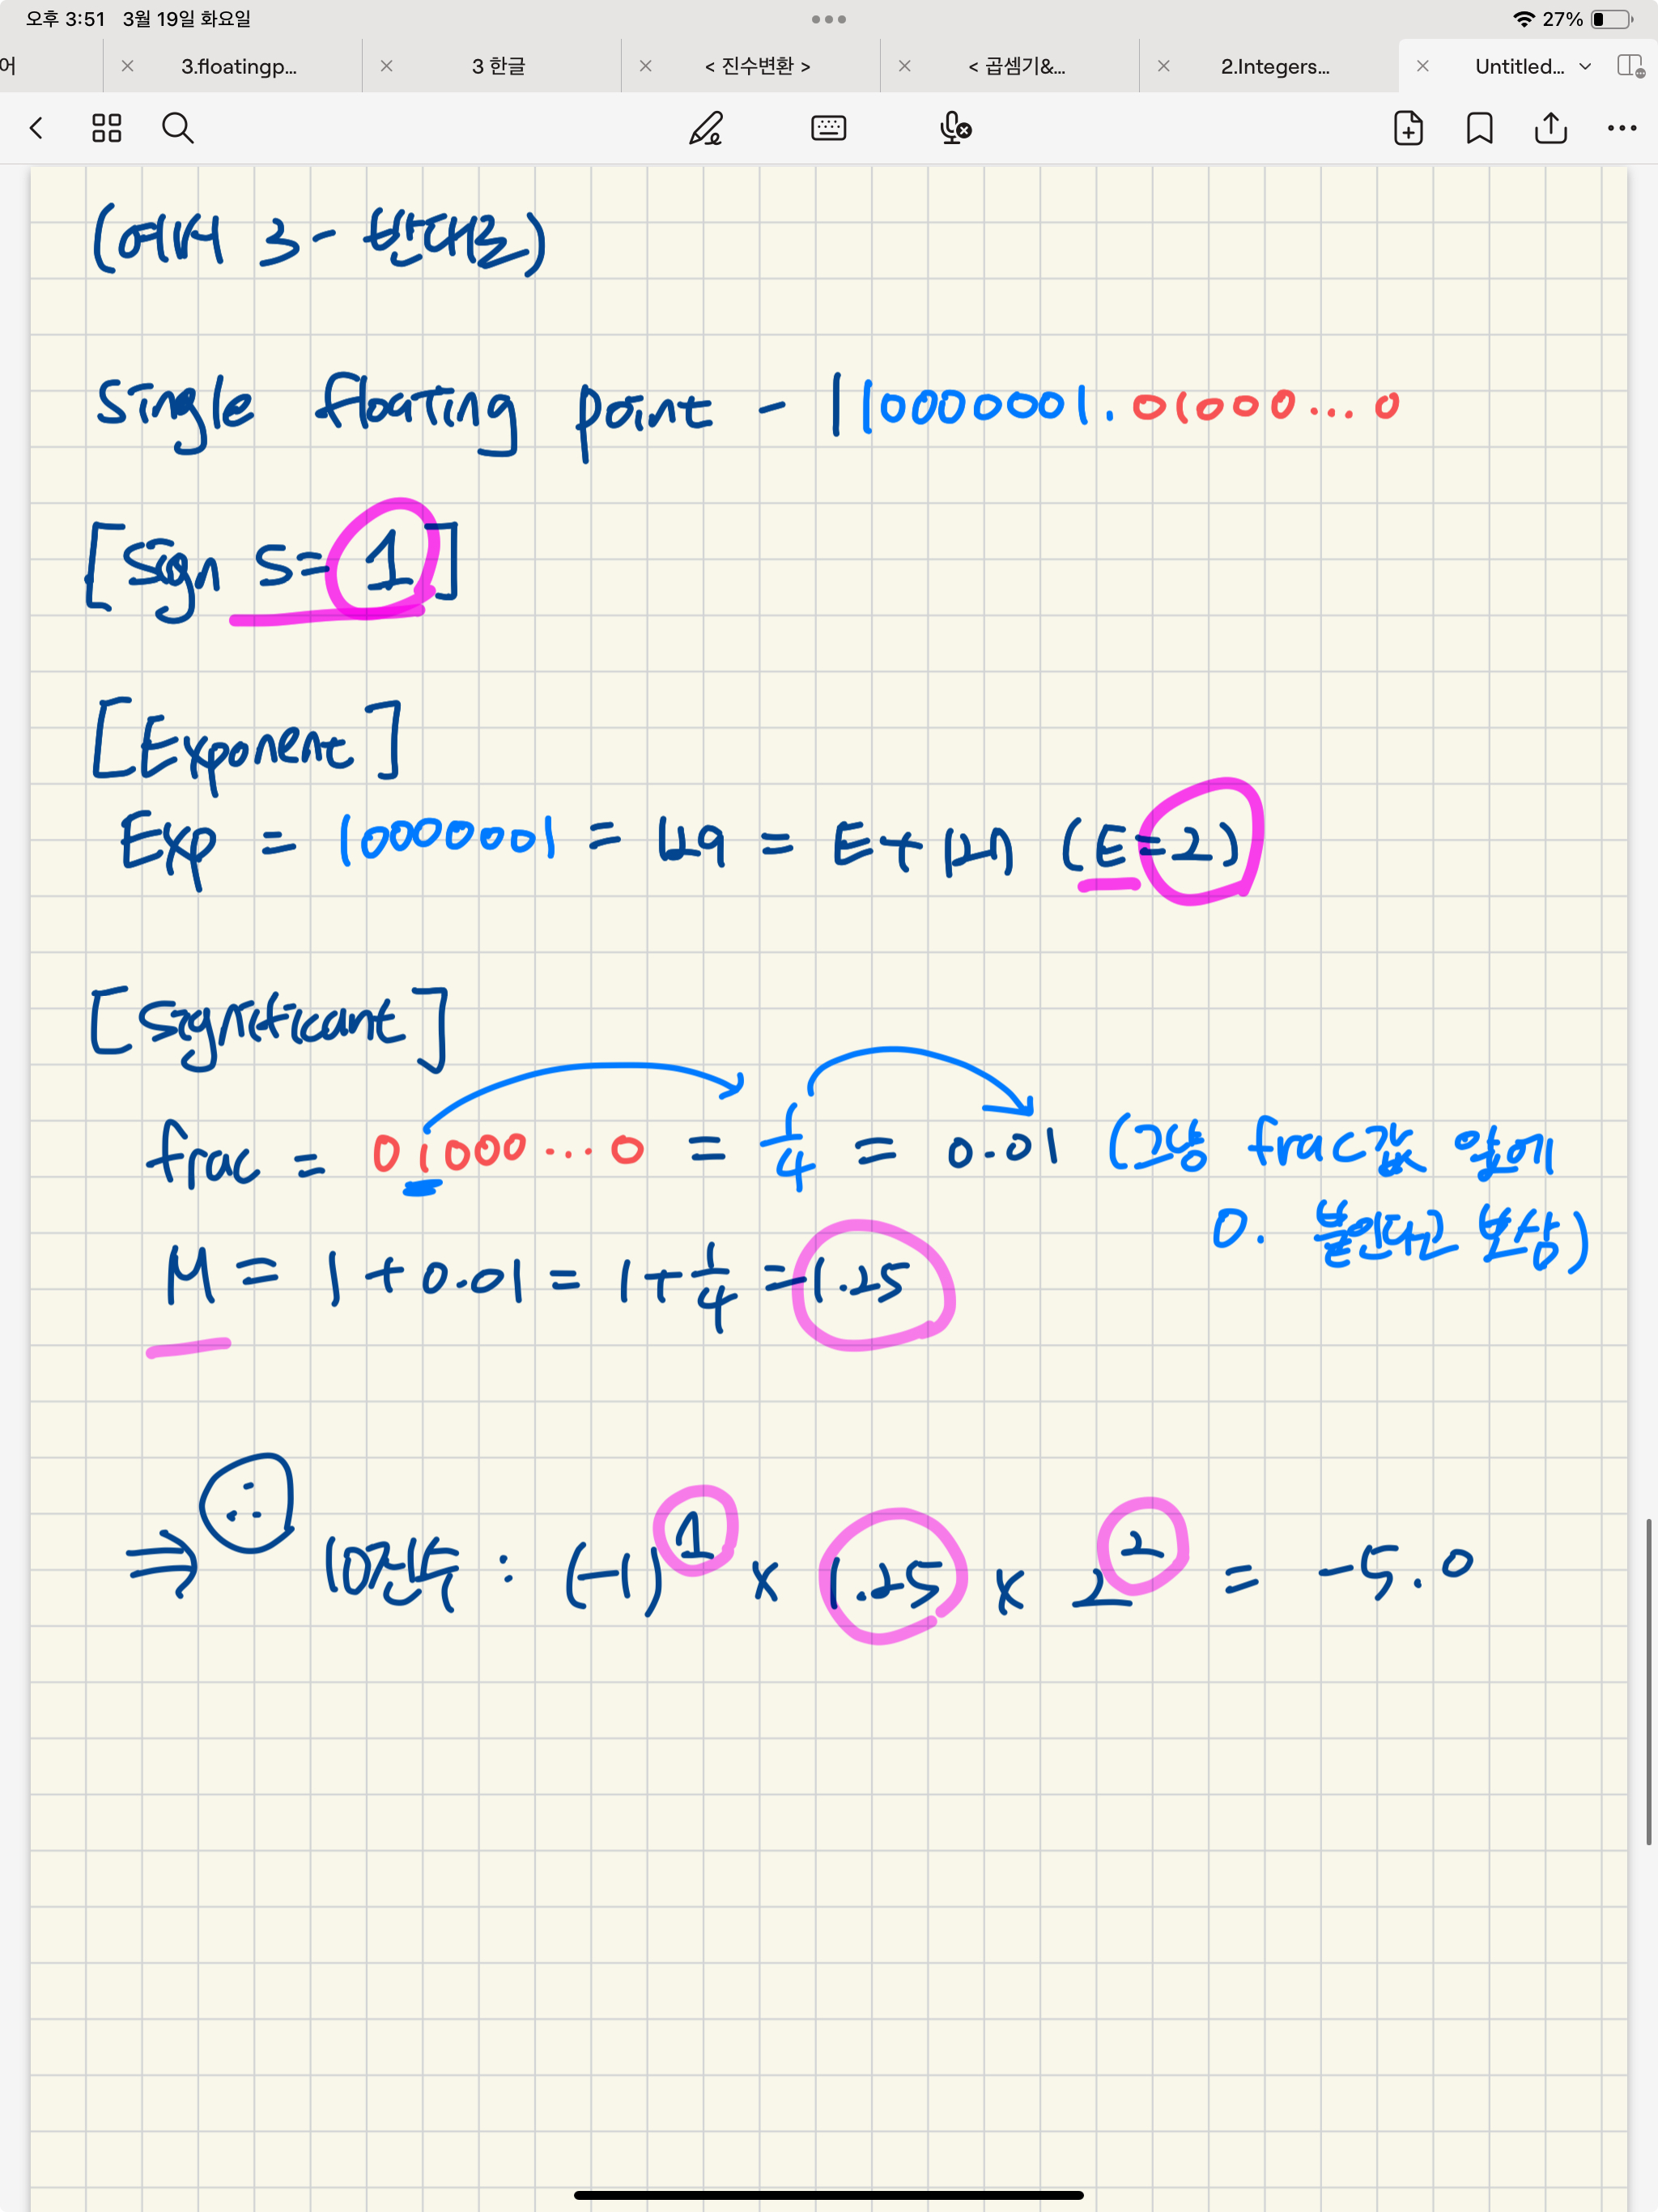 오후 3:51 3월 19일 화요일 27%
어 3.floatingp... 3 한글 < 진수변환 > < 곱셈기&... 2.Integers... Untitled...
(예제 3 - 반대로)
Single floating point - 1 10000001.01000...0
[Sign S=1]
[Exponent]
Exp = 10000001 = 129 = E+127 (E=2)
[Significant]
frac = 01000...0 = 1/4 = 0.01 (그냥 frac값 앞에
0. 붙인다고 보삼)
M = 1+0.01 = 1+1/4 = 1.25
⇒ ∴ 10진수 : (-1)^1 x 1.25 x 2^2 = -5.0